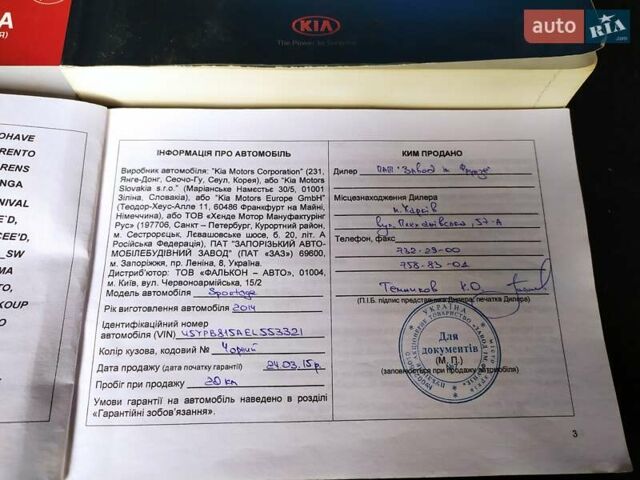 KIA
The Power to Surprise
auto RIA
.com
OHAVE
RENTO
ARENS
NGA
NIVAL
E'D,
CEE'D,
_SW
KOUP
ІНФОРМАЦІЯ ПРО АВТОМОБІЛЬ
Виробник автомобіля: "Kia Motors Corporation" (231,
Янге-Донг, Сеочо-Гу, Сеул, Корея), або "Kia Motors
Slovakia s.r.o." (Маріанське Намєстє 30/5, 01001
Зіліна, Словакія), або "Kia Motors Europe GmbH"
(Теодор-Хеус-Алле 11, 60486 Франкфурт на Майні,
Німеччина), або ТОВ «Хєнде Мотор Мануфактурінг
Рус» (197706, Санкт – Петербург, Курортний район,
м. Сестрорєцьк, Лєвашовське шосе, б. 20, літ. А
Російська Федерація), ПАТ "ЗАПОРІЗЬКИЙ АВТО-
МОБІЛЕБУДІВНИЙ ЗАВОД" (ПАТ "ЗАЗ") 69600,
м. Запоріжжя, пр. Леніна, 8, Україна.
Дистриб'ютор: ТОВ «ФАЛЬКОН – АВТО», 01004,
м. Київ, вул. Червоноармійська, 15/2
Модель автомобіля Sportage
Рік виготовлення автомобіля 2014
Ідентифікаційний номер
автомобіля (VIN) U5YPB815AEL553321
Колір кузова, кодовий № Чорний
Дата продажу (дата початку гарантії) 24.03.15р
Пробіг при продажу 20 км
Умови гарантії на автомобіль наведено в розділі
«Гарантійні зобов'язання».
КИМ ПРОДАНО
Дилер ПАТ "Завод ім Фрунзе"
Місцезнаходження Дилера
м. Харків
вул. Плеханівська, 57-А
Телефон, факс
732-23-00
758-83-01
Темников К.О.
(П.І.Б. підпис представника Дилера, печатка Дилера)
УКРАЇНА
Для
документів
(М. П.)
(заповнюється при продажу автомобіля)
3